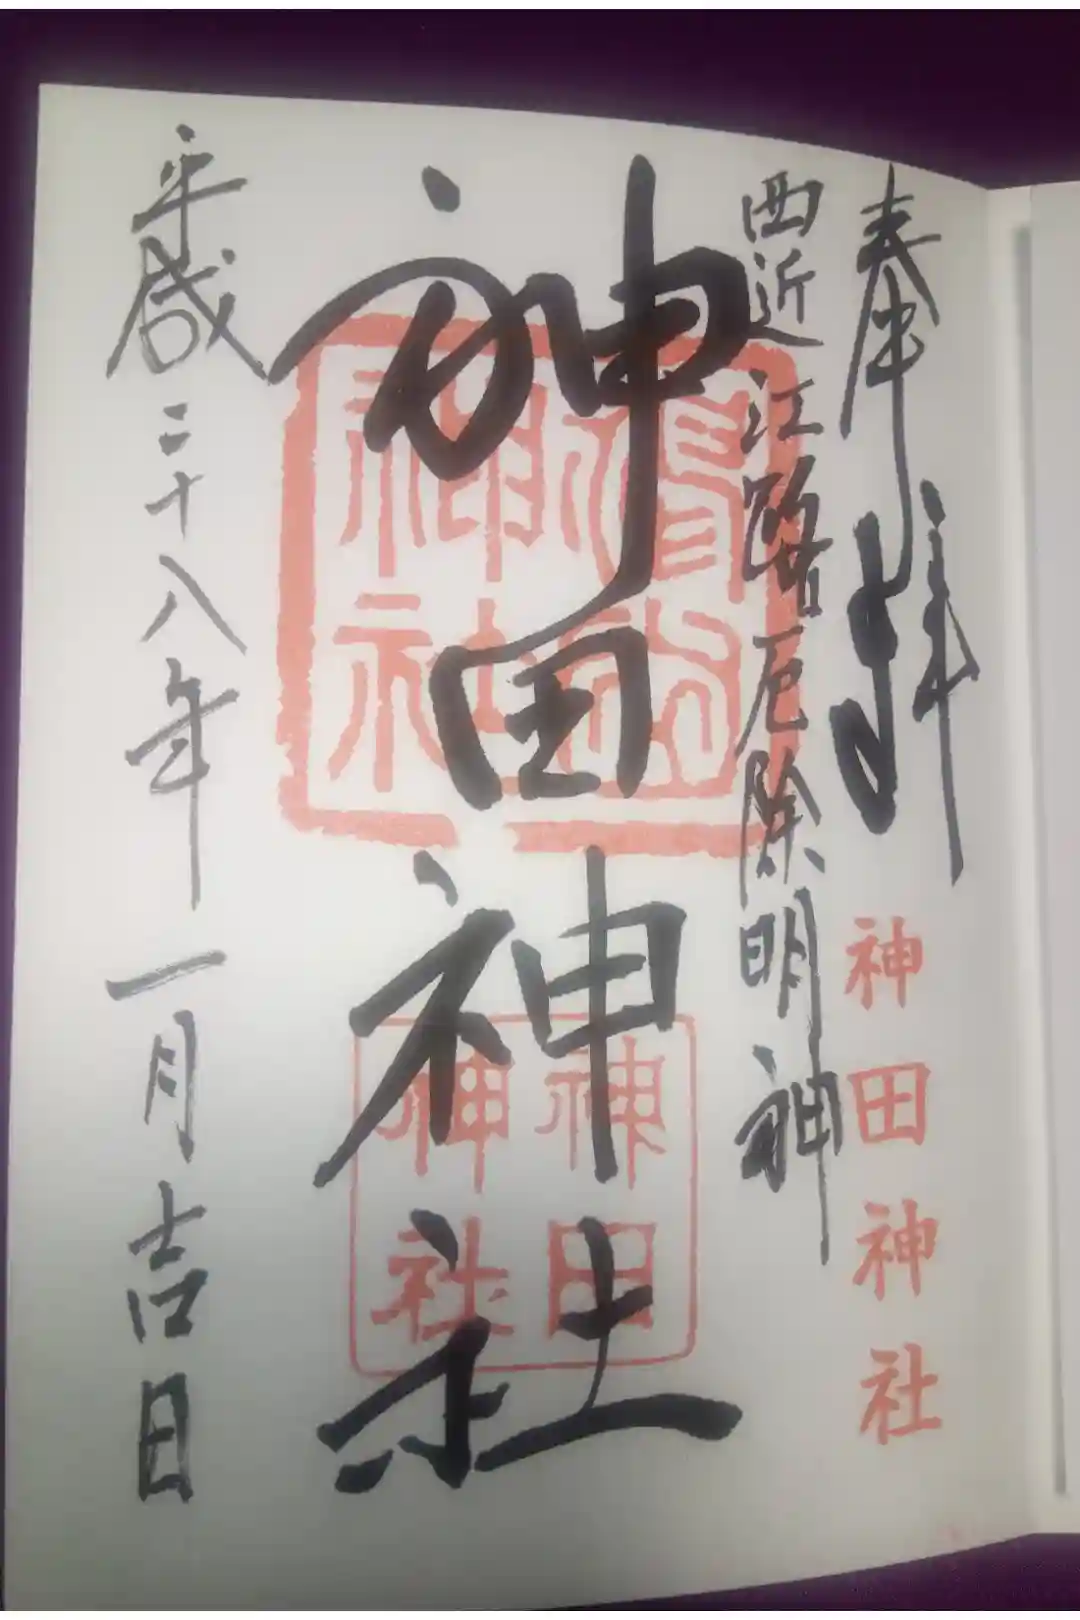 奉拝
神田神社
西近江路厄除明神
神田神社
神田神社
平成二十八年一月吉日